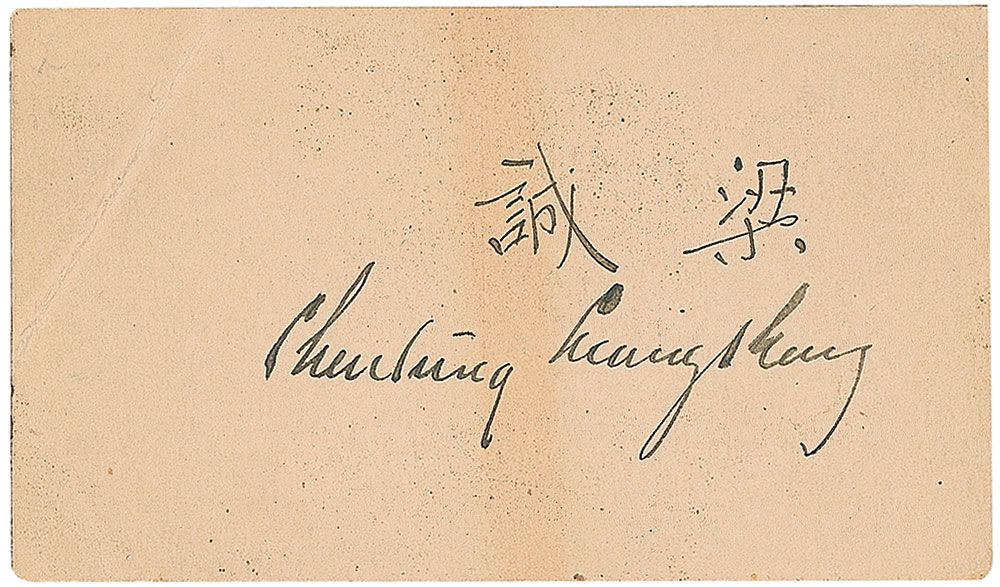 梁誠
Chentung Liang Cheng